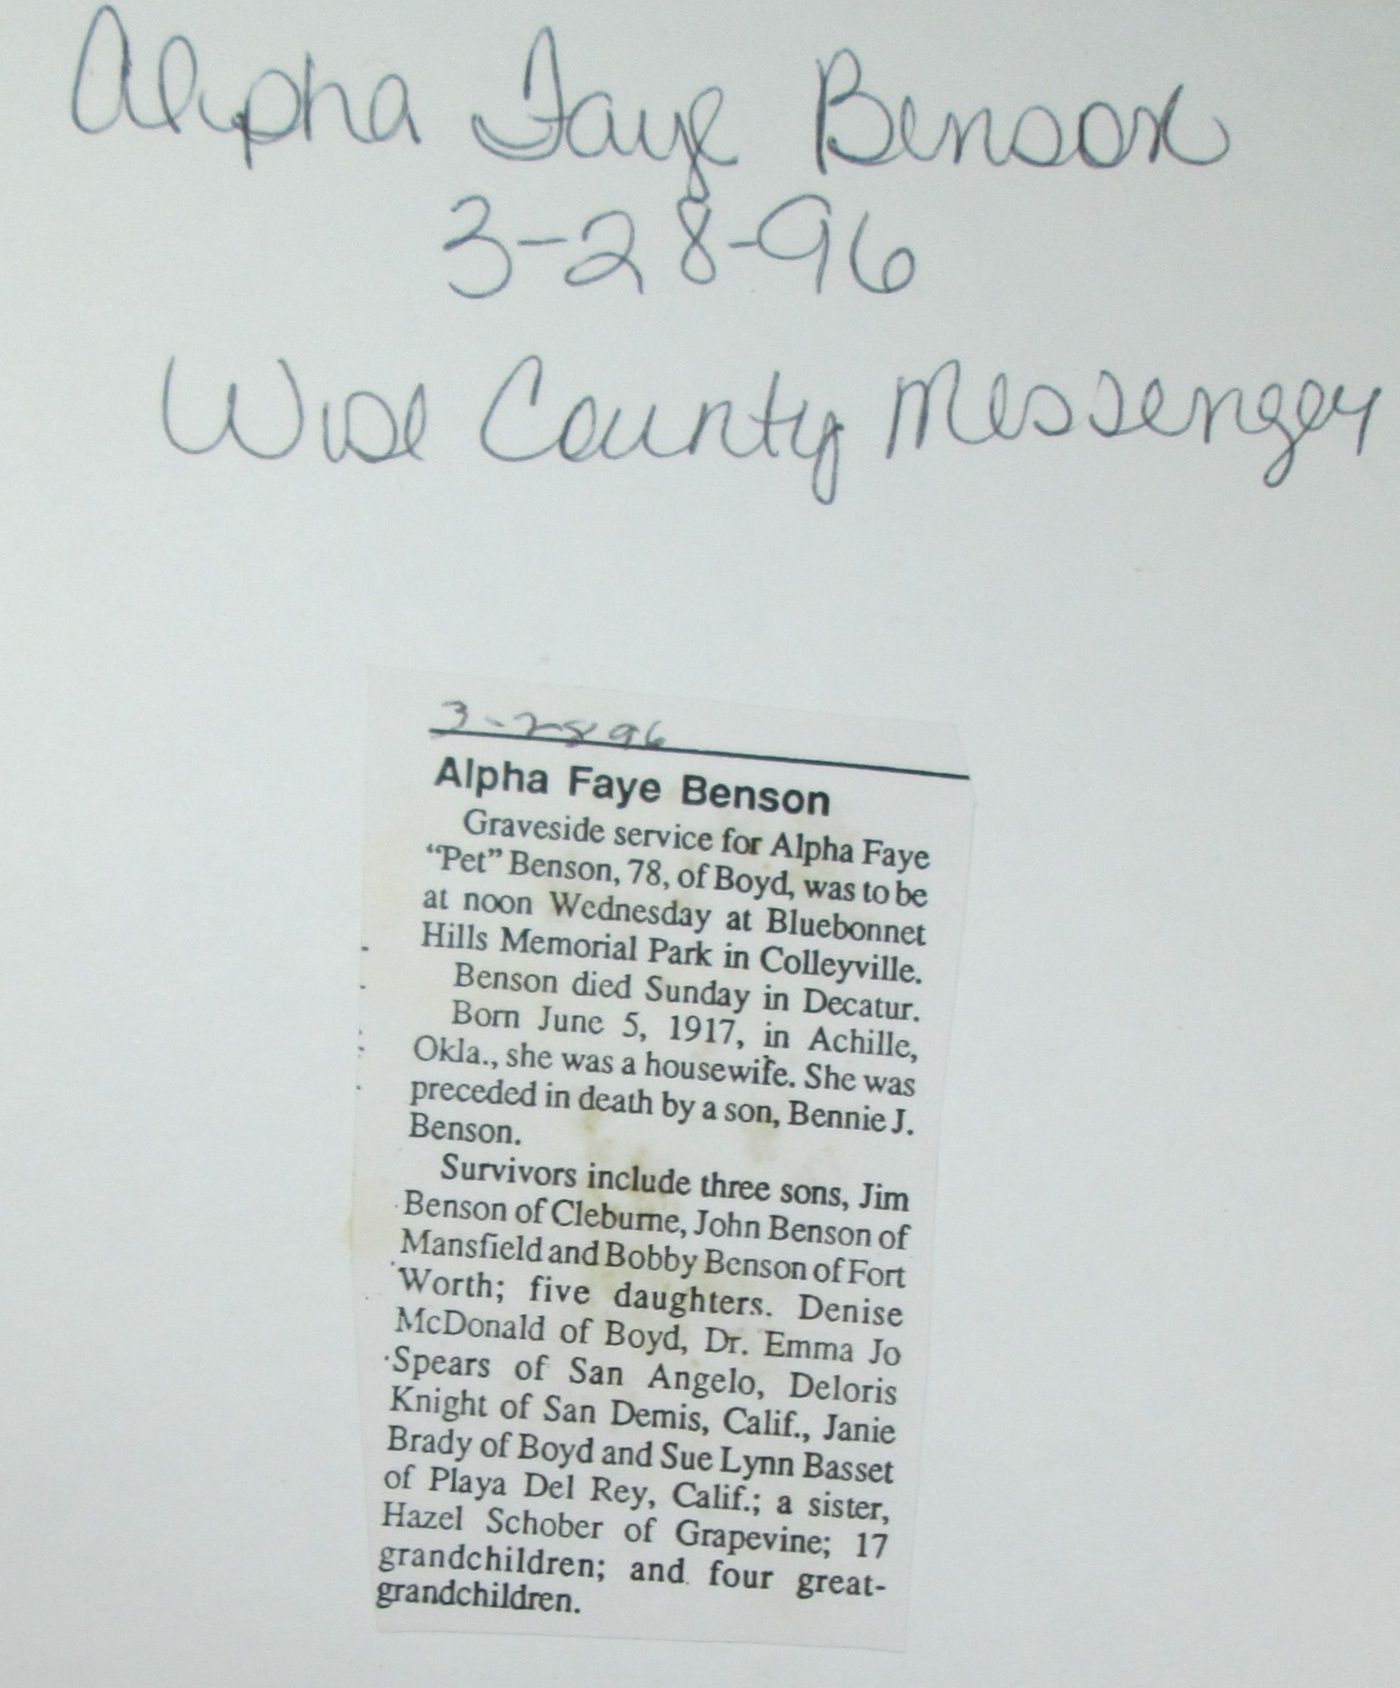 Alpha Faye Benson
3-28-96
Wise County Messenger
3-28 96
Alpha Faye Benson
Graveside service for Alpha Faye
“Pet” Benson, 78, of Boyd, was to be
at noon Wednesday at Bluebonnet
Hills Memorial Park in Colleyville.
Benson died Sunday in Decatur.
Born June 5, 1917, in Achille,
Okla., she was a housewife. She was
preceded in death by a son, Bennie J.
Benson.
Survivors include three sons, Jim
Benson of Cleburne, John Benson of
Mansfield and Bobby Benson of Fort
Worth; five daughters. Denise
McDonald of Boyd, Dr. Emma Jo
Spears of San Angelo, Deloris
Knight of San Demis, Calif., Janie
Brady of Boyd and Sue Lynn Basset
of Playa Del Rey, Calif.; a sister,
Hazel Schober of Grapevine; 17
grandchildren; and four great-
grandchildren.